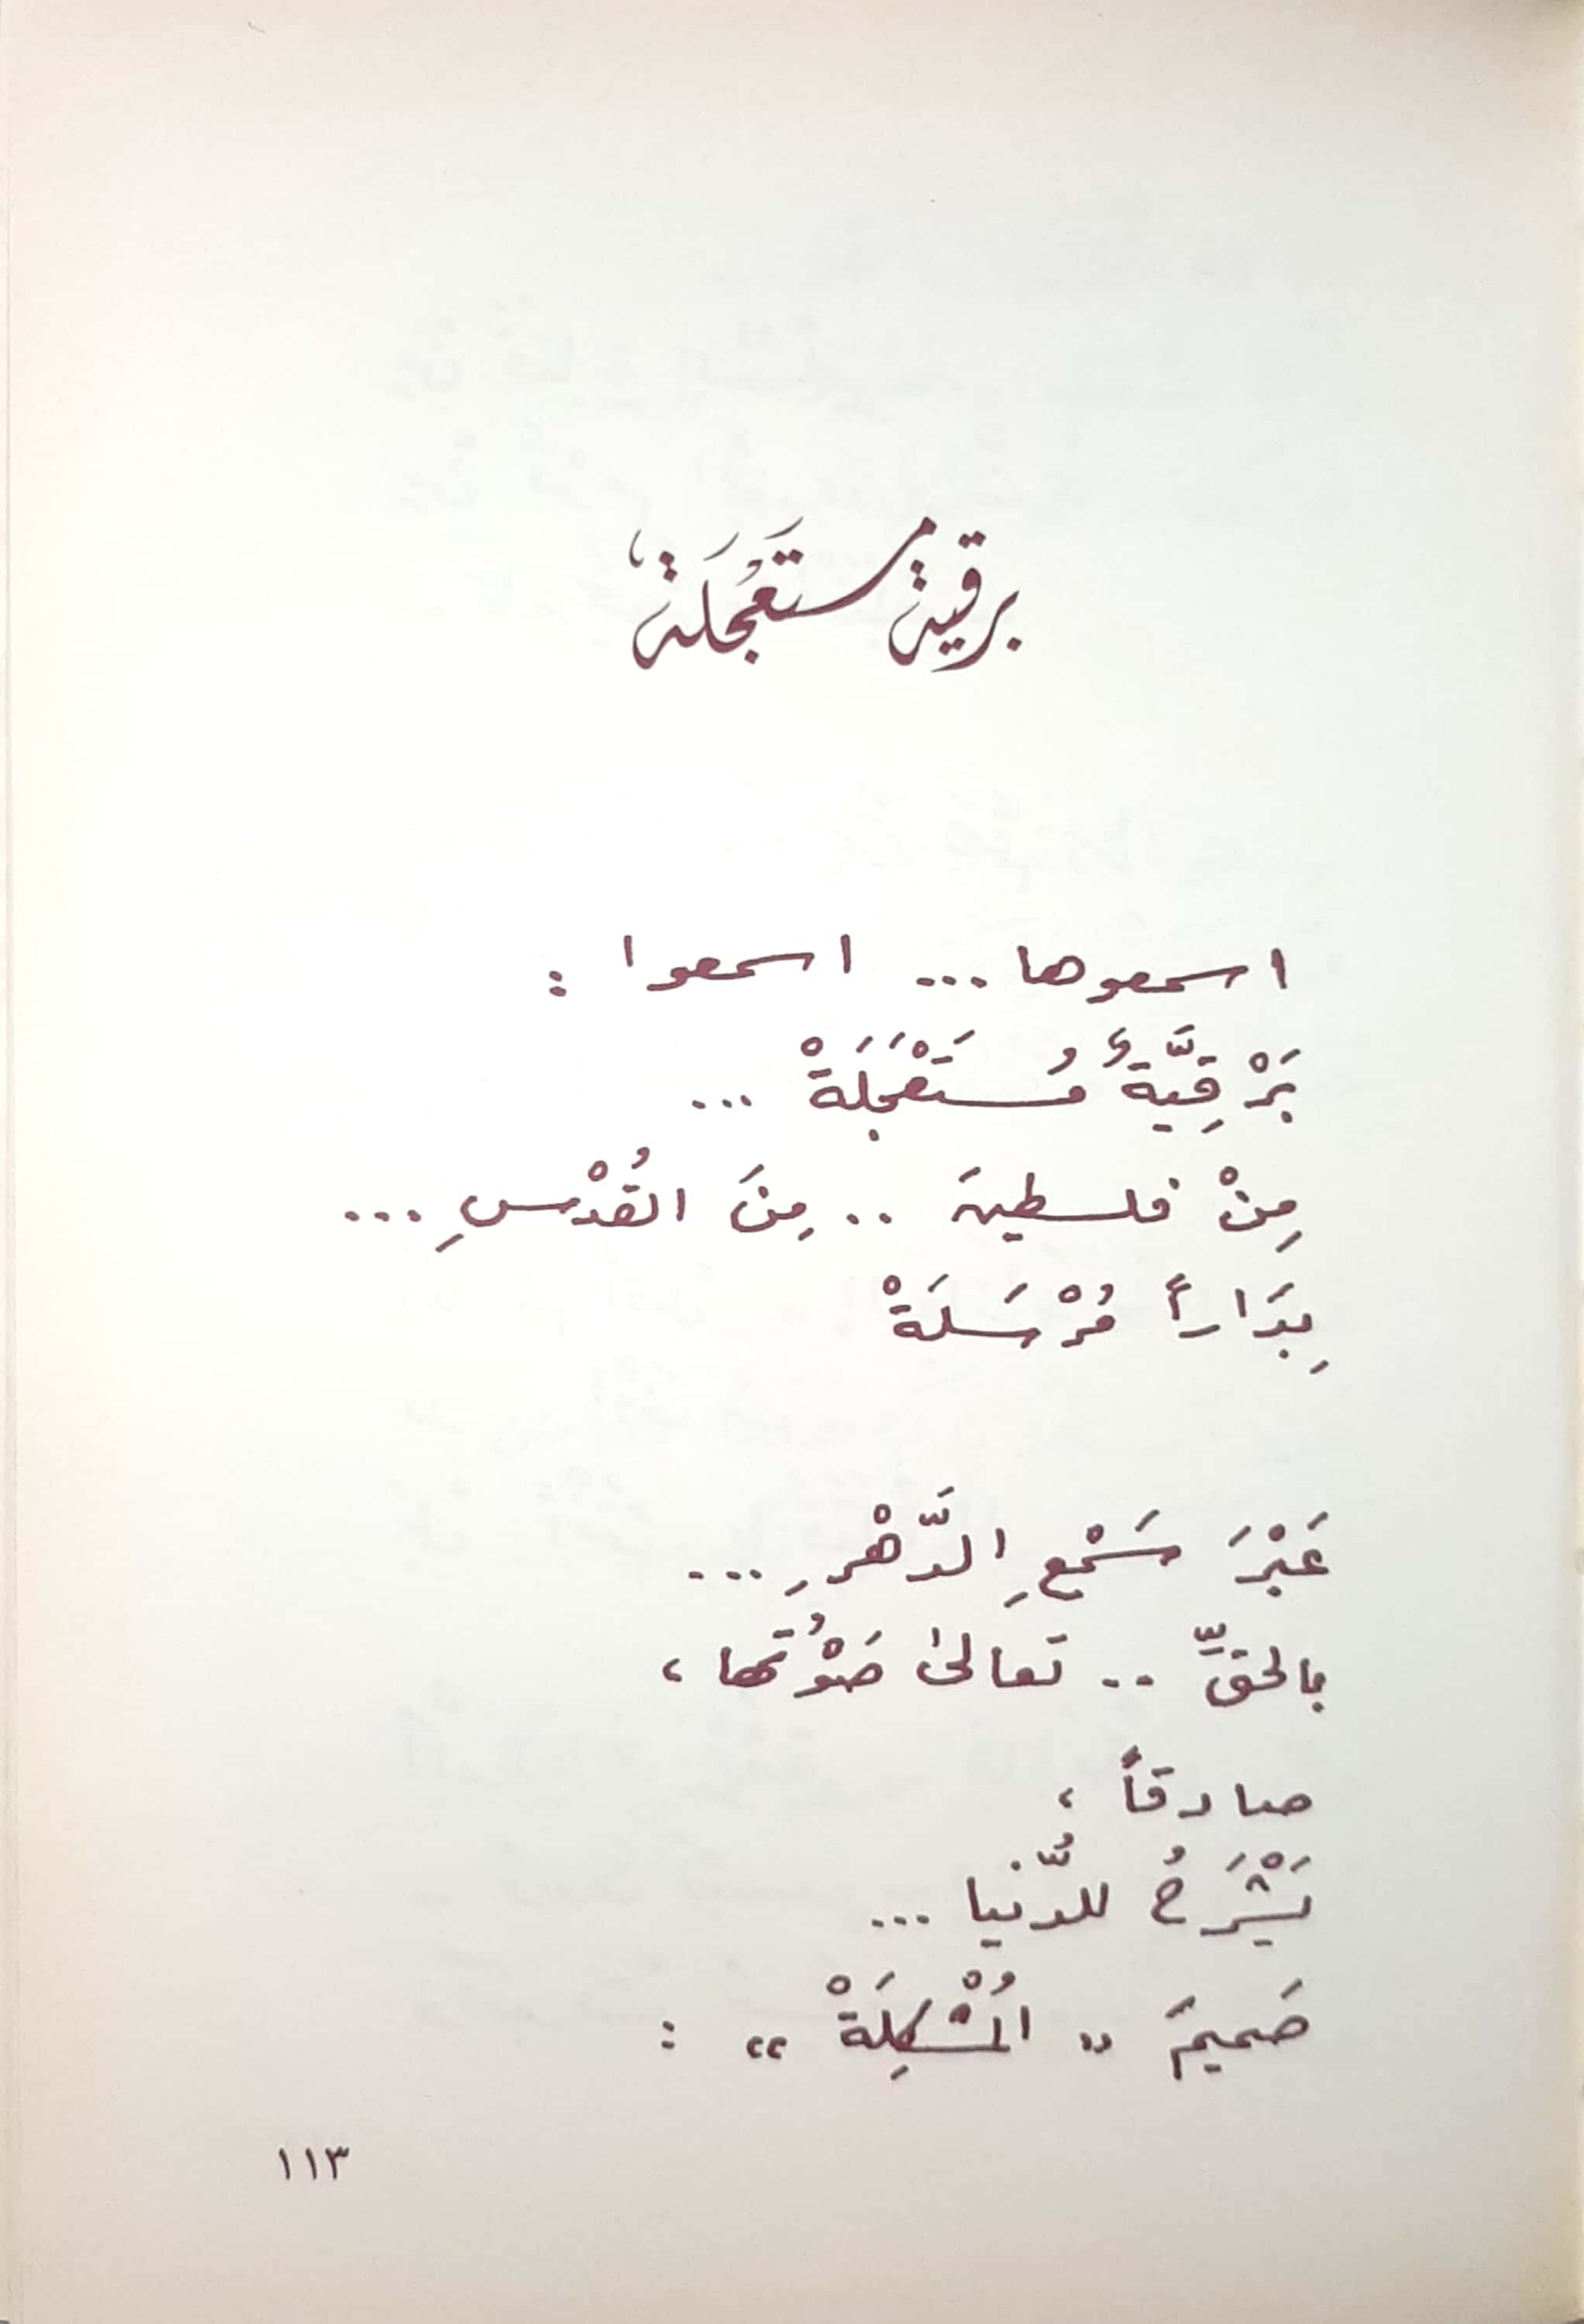 برقية مستعجلة
اسمعوها ... اسمعوا :
بَرْقِيَّةٌ مُستَعْجَلَةْ ...
مِنْ فلسطين .. مِنَ القُدْسِ ...
بِدَاراً مُرْسَلَةْ
عَبْرَ سَمْعِ الدَّهْرِ ...
بالحقِّ .. تعالىٰ صَوْتُها ،
صادقاً ،
يَشْرَحُ للدُّنيا ...
صَميمَ " المُشْكِلَةْ " :
١١٣